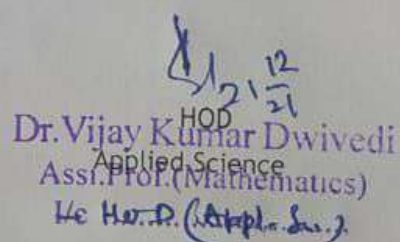 21 12/21
HOD
Dr. Vijay Kumar Dwivedi
Applied Science
Assi. Prof. (Mathematics)
H.O.D. (Appl. Sc.).